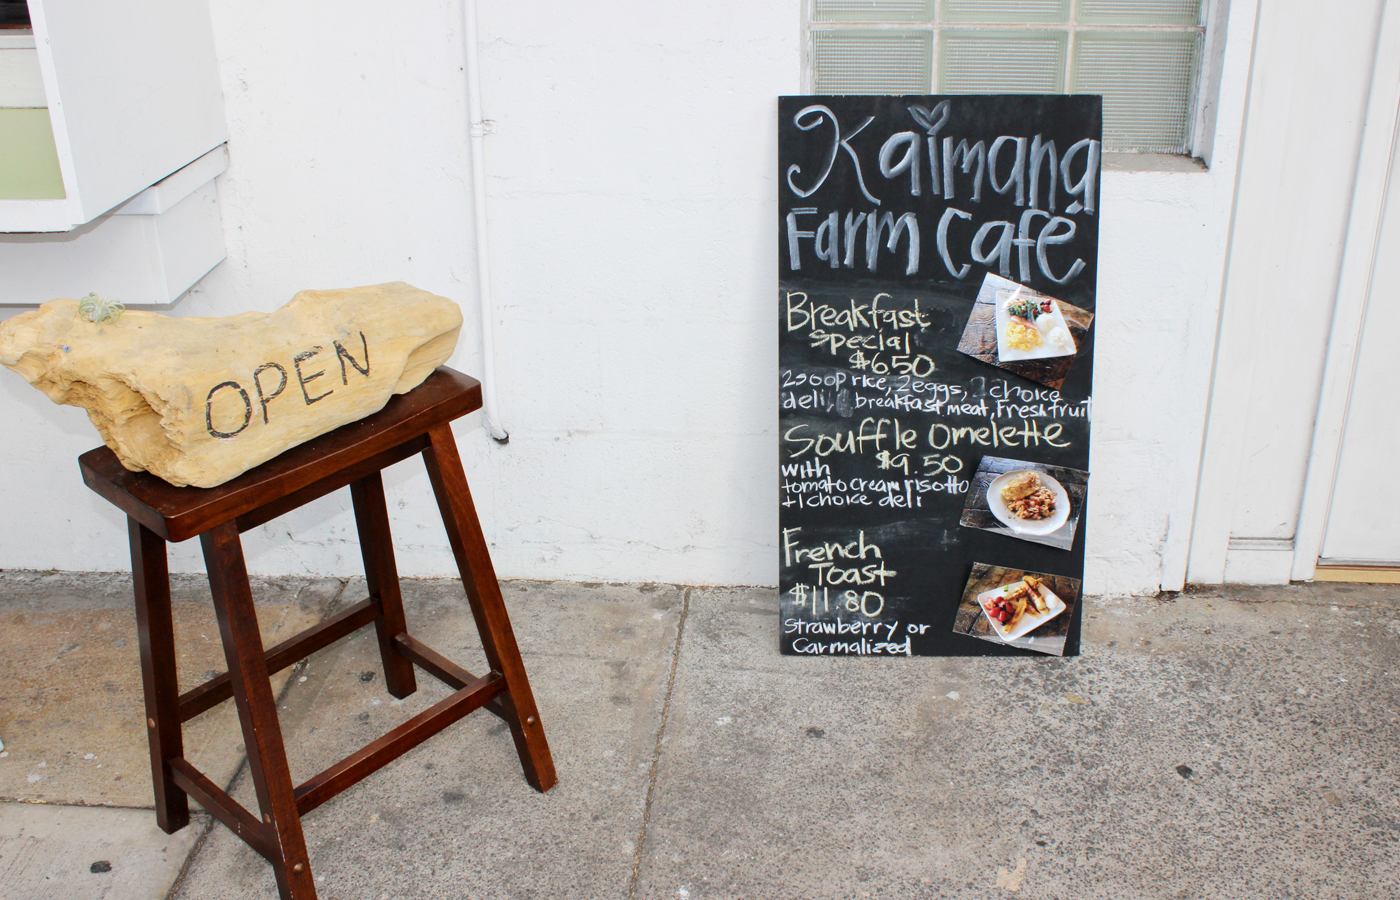 OPEN
Kaimana
Farm Café
Breakfast
Special
$6.50
2 scoop rice, 2 eggs, choice
deli, breakfast meat, Fresh fruit
Souffle Omelette
$9.50
with
tomato cream risotto
+1 choice deli
French
Toast
$11.80
Strawberry or
Carmalized